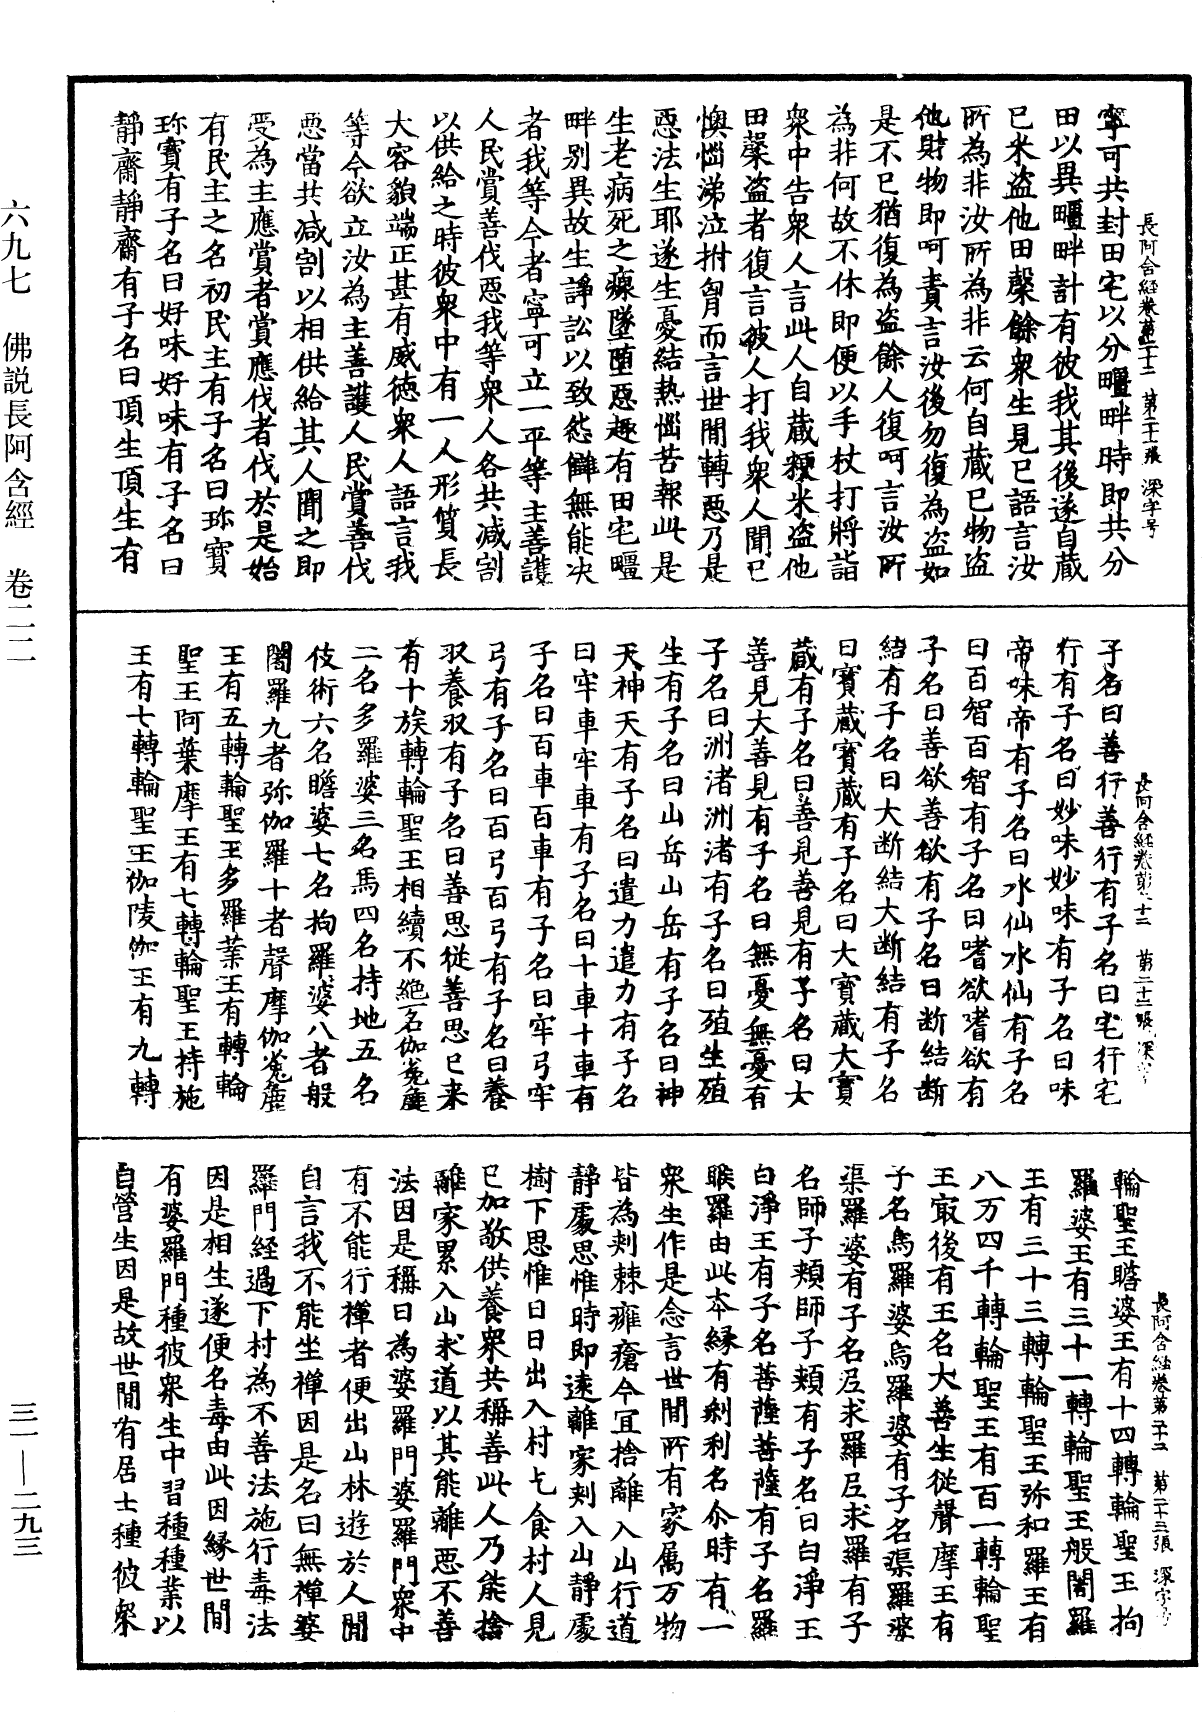 寧可共封田宅以分疆畔時即共分
田以異疆畔計有彼我其後遂自藏
已米盜他田䅽餘衆生見已語言汝
所為非汝所為非云何自藏已物盜
他財物即呵責言汝後勿復為盜如
是不已猶復為盜餘人復呵言汝所
為非何故不休即便以手杖打將詣
衆中告衆人言此人自藏粳米盜他
田䅽盜者復言彼人打我衆人聞已
懊惱涕泣拊胷而言世間轉惡乃是
惡法生耶遂生憂結熱惱苦報此是
生老病死之瘝墜墮惡趣有田宅疆
畔別異故生諍訟以致怨讎無能决
者我等今者寧可立一平等主善護
人民賞善伐惡我等衆人各共减割
以供給之時彼衆中有一人形質長
大容貌端正甚有威德衆人語言我
等今欲立汝為主善護人民賞善伐
惡當共减割以相供給其人聞之即
受為主應賞者賞應伐者伐於是始
有民主之名初民主有子名曰珎寶
珎寶有子名曰好味好味有子名曰
靜齋靜齋有子名曰頂生頂生有
長阿含經卷第二十二 第二十一張 深字号
子名曰善行善行有子名曰宅行宅
行有子名曰妙味妙味有子名曰味
帝味帝有子名曰水仙水仙有子名
曰百智百智有子名曰嗜欲嗜欲有
子名曰善欲善欲有子名曰断結断
結有子名曰大断結大断結有子名
曰寶藏寶藏有子名曰大寶藏大寶
藏有子名曰善見善見有子名曰大
善見大善見有子名曰無憂無憂有
子名曰洲渚洲渚有子名曰殖生殖
生有子名曰山岳山岳有子名曰神
天神天有子名曰遣力遣力有子名
曰牢車牢車有子名曰十車十車有
子名曰百車百車有子名曰牢弓牢
弓有子名曰百弓百弓有子名曰養
牧養牧有子名曰善思從善思已来
有十族轉輪聖王相續不絶一名伽㝹麁
二名多羅婆三名馬四名持地五名
伎術六名瞻婆七名拘羅婆八者般
闍羅九者弥伽羅十者聲摩伽㝹麁
王有五轉輪聖王多羅業王有轉輪
聖王阿葉摩王有七轉輪聖王持施
王有七轉輪聖王伽陵伽王有九轉
長阿含經卷第二十二 第二十二張 深字号
輪聖王瞻婆王有十四轉輪聖王拘
羅婆王有三十一轉輪聖王般闍羅
王有三十三轉輪聖王弥和羅王有
八万四千轉輪聖王有百一轉輪聖
王寂後有王名大善生從聲摩王有
子名烏羅婆烏羅婆有子名渠羅婆
渠羅婆有子名尼求羅尼求羅有子
名師子頰師子頰有子名曰白淨王
白淨王有子名菩薩菩薩有子名羅
睺羅由此夲緣有刹利名尒時有一
衆生作是念言世間所有家属万物
皆為刾棘癕瘡今宜捨離入山行道
靜處思惟時即遠離家刾入山靜處
樹下思惟日日出入村乞食村人見
已加敬供養衆共稱善此人乃能捨
離家累入山求道以其能離惡不善
法因是稱曰為婆羅門婆羅門衆中
有不能行禪者便出山林遊於人間
自言我不能坐禪因是名曰無禪婆
羅門經過下村為不善法施行毒法
因是相生遂便名毒由此因緣世間
有婆羅門種彼衆生中習種種業以
自營生因是故世間有居士種彼衆
長阿含經卷第二十二 第二十三張 深字号
六九七 佛説長阿含經 卷二二
三一—二九三